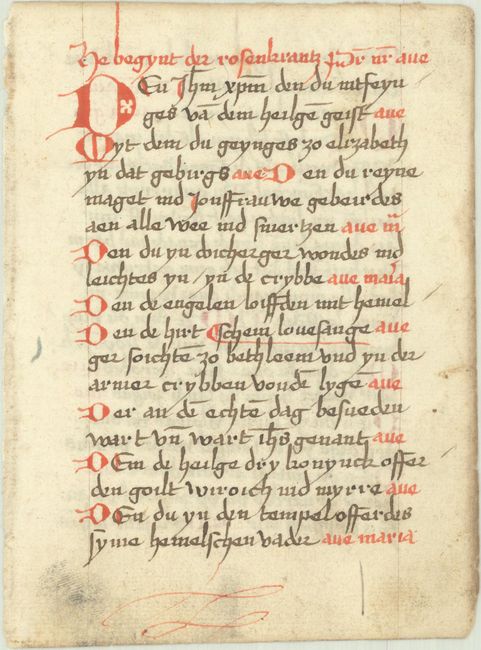 He begynt der rosenkrantz Pr nr aue
DEn Jhm xpm den du intfeyn
ges vā dem heilgē geist aue
Myt dem du geynges zo elizabeth
yn dat gebirgs aue Den du reyne
maget ind Jonffrauwe gebeirdes
aen alle wee ind smertzen aue m
Den du yn doicherger wondes ind
leichtes yn yn de crybbe aue maria
Den de engelen loiffden mit hemel
Den de hirt schem louesange aue
ger soichtē zo bethleem vnd yn der
armer crybben vondē lygen aue
Der an dē echtē dag besneden
wart vn̄ wart ihs genant aue
DEm de heilge dry konynck offer
den goilt wiroich ind myrre aue
DEn du yn den tempel offerdes
syme hemelschen vader aue maria